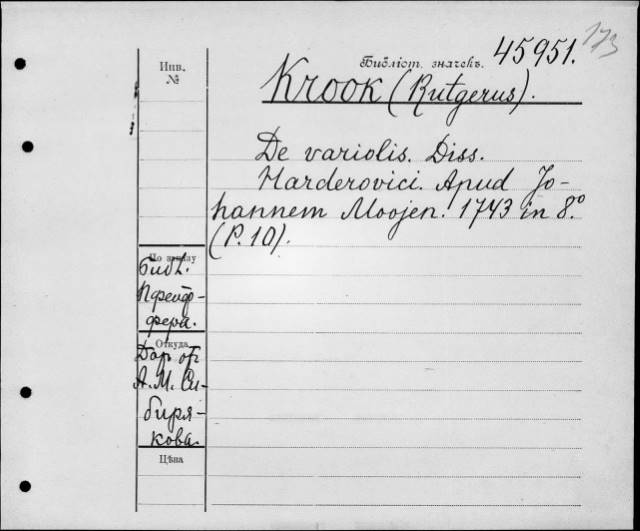 173
Библіот. значекъ. 45951.
Инв.
№
Krook (Rutgerus).
De variolis. Diss.
Harderovici. Apud Jo-
hannem Moojen. 1743 in 8.º
(P. 10).
По заказу
Библ.
Пфейф-
фера.
Откуда
Дар от
А. М. Си-
биря-
кова.
Цѣна